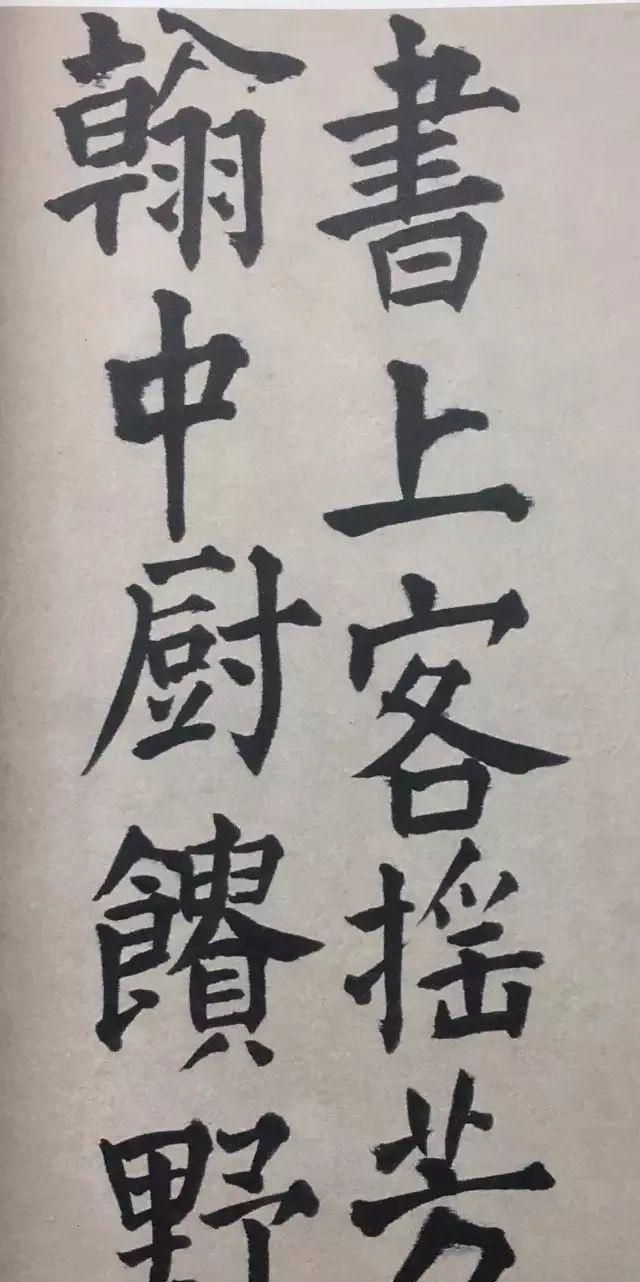 書上客揺芳
翰中厨饋野